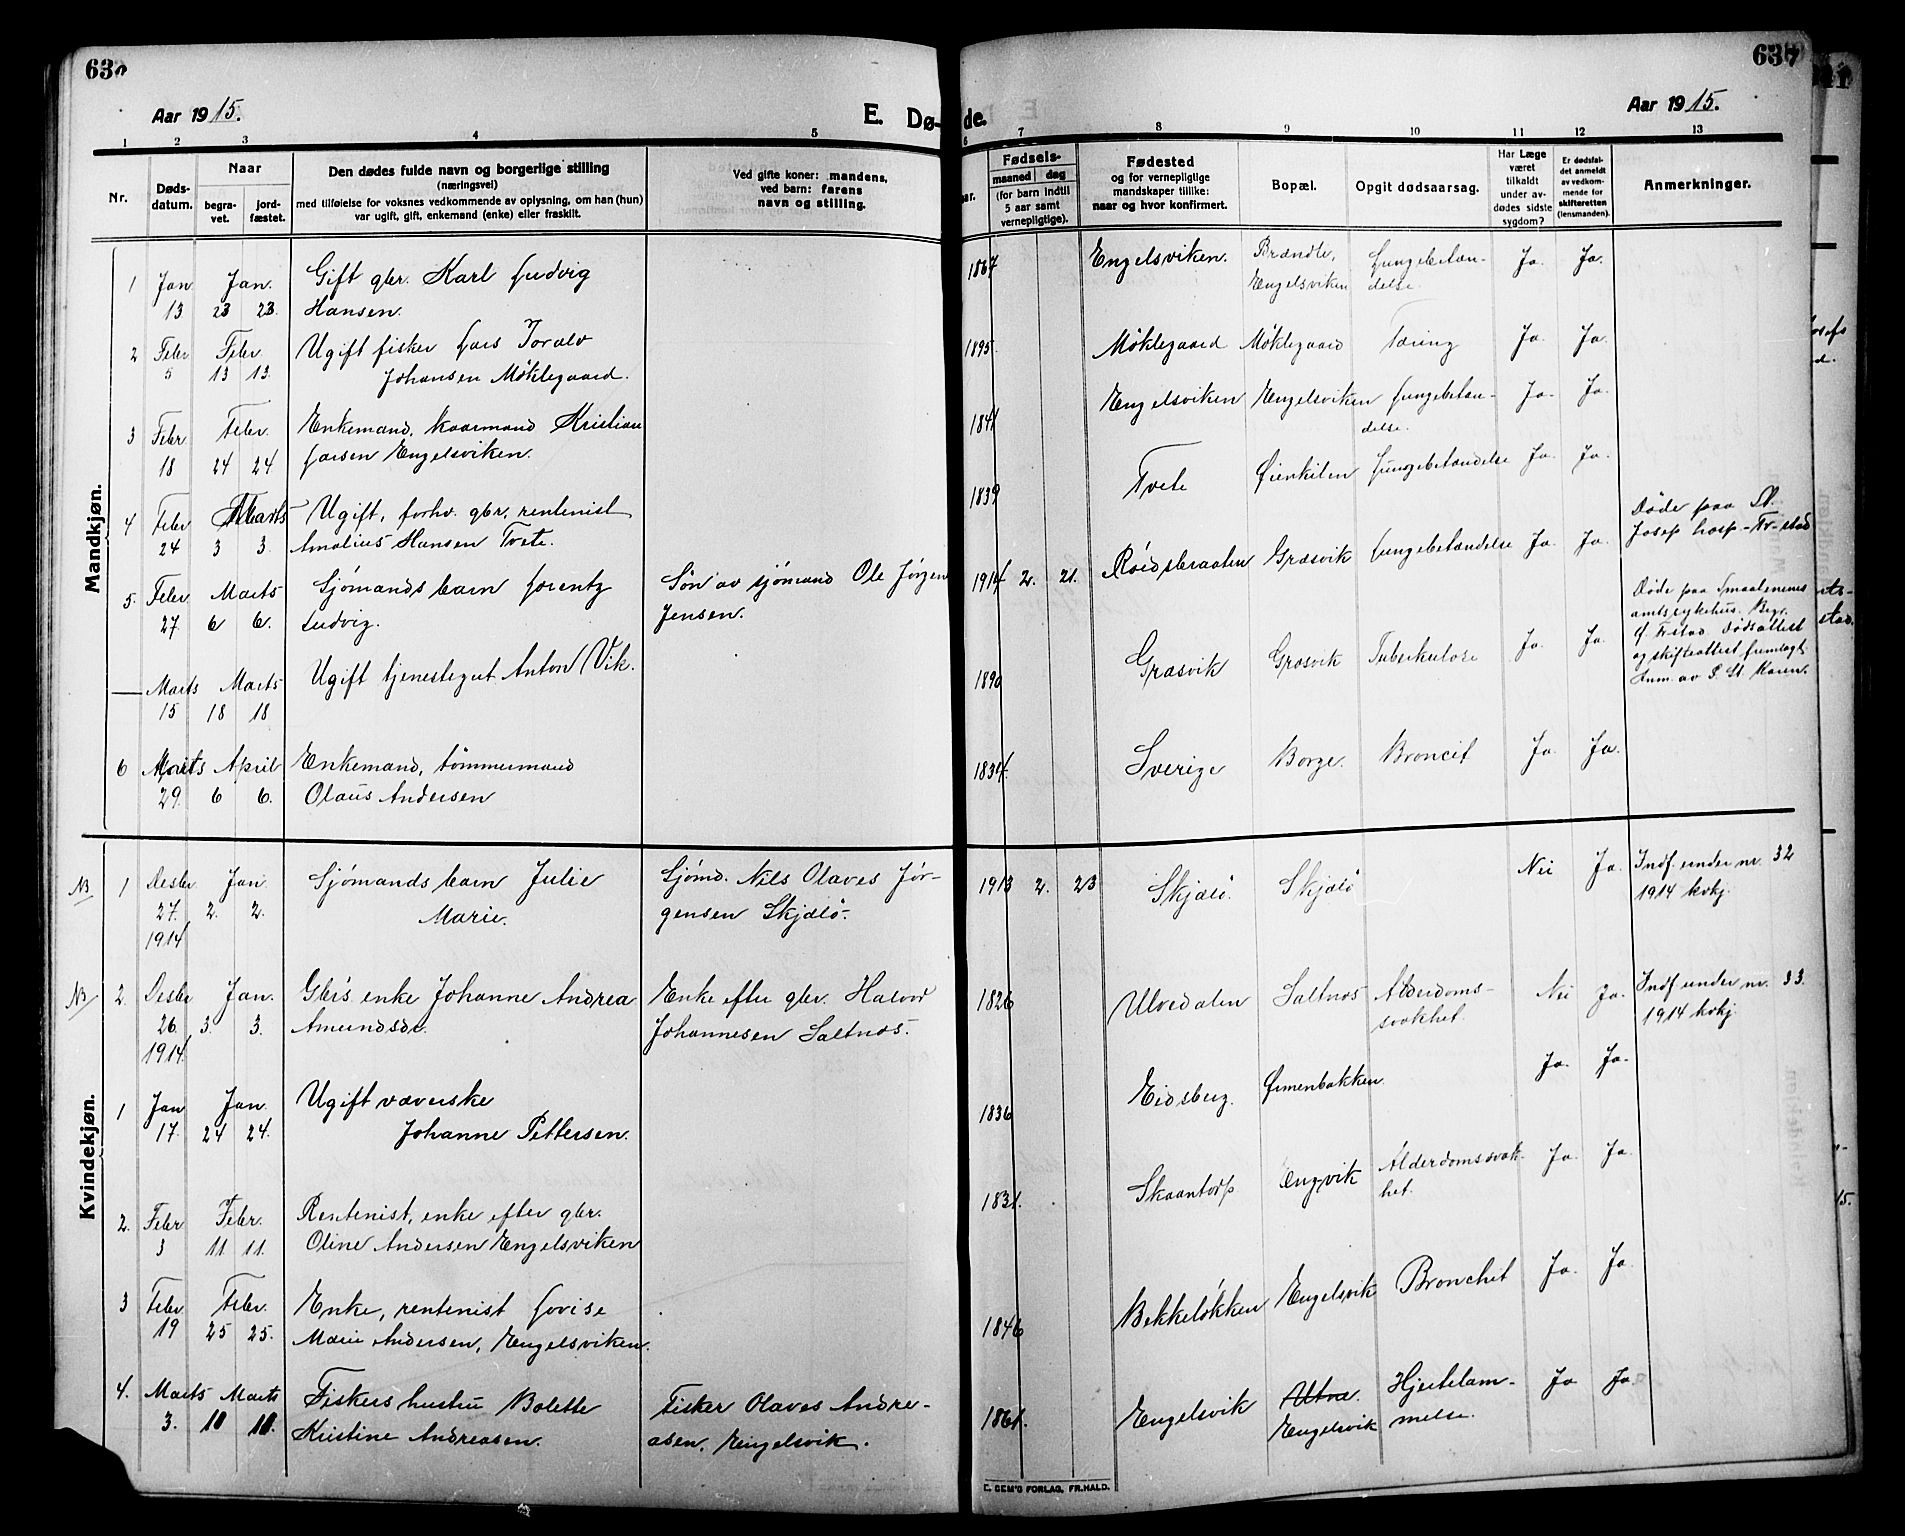 63
637
Aar 1915.
E. Dø-
de.
Aar 1915.
1 2 3 4 5
6 7 8 9 10 11 12 13
Nr.
Døds-
datum.
Naar
begra-
vet.
jord-
fæstet.
Den dødes fulde navn og borgerlige stilling
(næringsvei)
med tilføielse for voksnes vedkommende av oplysning, om han (hun)
var ugift, gift, enkemand (enke) eller fraskilt.
Ved gifte koner: mandens,
ved barn: farens
navn og stilling.
Fødsels-
maaned dag
(for barn indtil
5 aar samt
vernepligtige).
Fødested
og for vernepligtige
mandskaper tillike:
naar og hvor konfirmert.
Bopæl.
Opgit dødsaarsag.
Har Læge
været
tilkaldt
under av-
dødes sidste
sygdom?
Er dødsfal-
det anmeldt
av vedkom-
mende for
skifteretten
(lensmanden).
Anmerkninger.
Mandkjøn.
1 Jan. Jan. Gift gbr. Karl Ludvig
13 23 23. Hansen.
1867 Engelsviken. Brændte, Lungebetæn- Ja. Ja.
Engelsviken delse.
2 Febr Febr. Ugift fisker Lars Toralv
5 13 13. Johansen Møklegaard.
1895. Møklegaard Møklegaard Tæring Ja. Ja.
3 Febr. Febr. Enkemand, kaarmand Kristian
18 24 24 Larsen Engelsviken.
1841 Engelsviken Engelsviken Lungebetæn- Ja. Ja.
delse.
4 Febr Marts Ugift, forhv. gbr, rentenist
24 3 3. Amalius Hansen Tvete.
1839 Tvete Øienkilen Lungebetændelse Ja. Ja.
Døde paa St.
Josep hosp-Fr-stad
5. Febr. Marts Sjømands barn Lorentz Søn av sjømand Ole Jørgen
27. 6 6. Ludvig. Jensen.
1914 2. 21. Røidsbraaten Græsvik Lungebetændelse Ja. Ja.
— Marts Marts Ugift tjenestegut Anton Vik.
15 18 18
1890 Græsvik Græsvik Tuberkulose Ja. Ja.
Døde paa Smaalenenes
amtssykehus. Begr.
Ø. Frstad. Dødsattest
og skifteattest fremlagt.
6 Marts April Enkemand, tømmermand
29. 6 6. Olaus Andersen
1834. Sverige Borge. Broncit Ja. Ja.
Kvindekjøn.
NB 1 Desbr. Jan. Sjømands barn Julie Sjømd. Nils Olaves Jør-
27. 2. 2. Marie. gensen Skjælø.
1914
1913 2. 23 Skjælø. Skjælø Nei Ja. Indf. under nr. 32
1914 kvkj.
NB 2. Desbr Jan. Gbr's enke Johanne Andrea Enke efter gbr. Halvor
26. 3. 3. Amundsdr. Johannesen Saltnes.
1914.
1826 Ulvedalen Saltnes Alderdoms- Nei Ja. Indf under nr. 33.
svakhet. 1914 kvkj.
1 Jan Jan. Ugift væverske
17. 24 24. Johanne Pettersen.
1836 Eidsberg. Ømenbakken. Ja. Ja.
2. Febr Febr. Rentenist, enke efter gbr.
3 11 11. Oline Andersen Engelsviken
1831. Skaantorp Engvik Alderdomssvak- Ja. Ja.
het.
3 Febr Febr. Enke, rentenist Lovise
19 25 25. Marie Andersen, Engelsviken.
1846 Bekkeløkken Engelsvik Bronchit Ja. Ja.
4. Marts Marts Fiskers hustru Bolette Fisker Olaves Andre-
3. 10 10. Kristine Andreasen. asen, Engelsvik.
1861. Engelsvik Utne. Hjertelam- Ja Ja.
Engelsvik melse.
E. SEM'S FORLAG, FR.HALD.